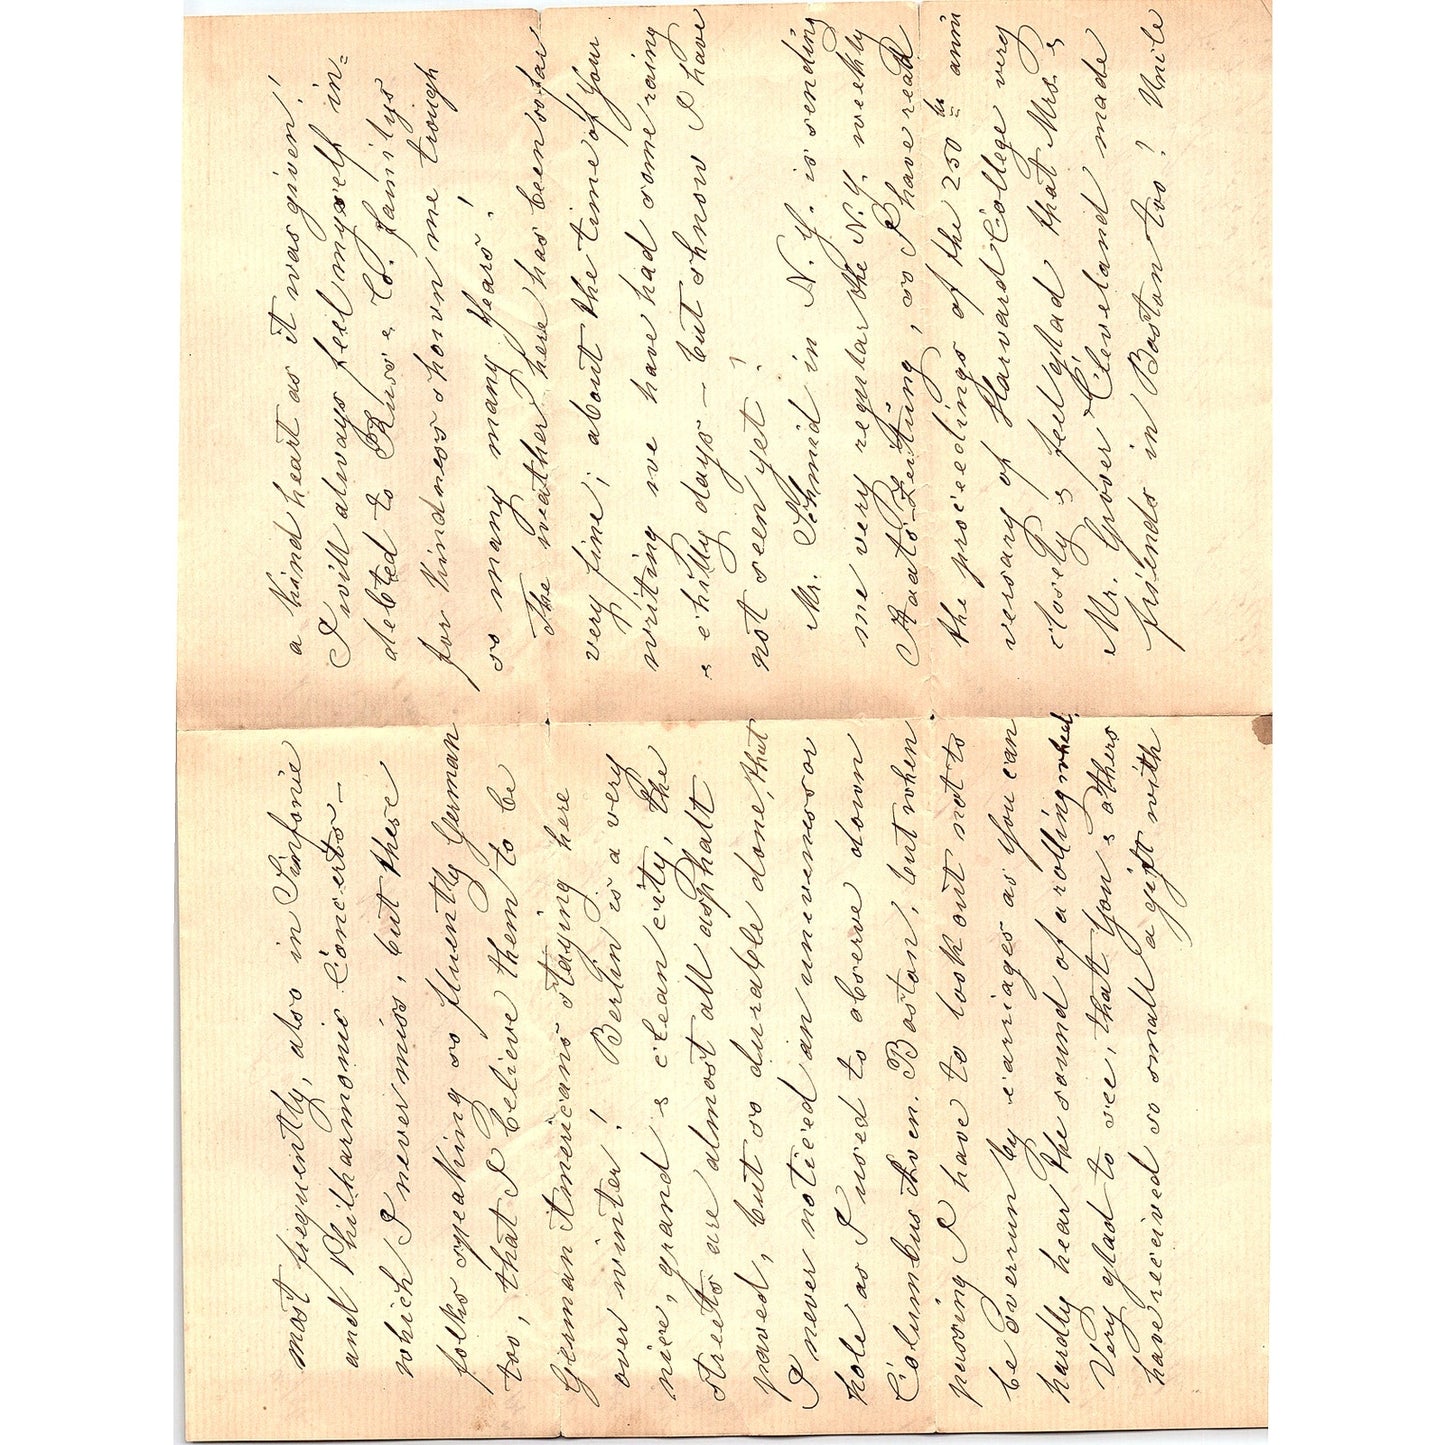 most frequently, also in Sinfonie
and Philharmonic Concerts –
which I never miss, but these
folks speaking so fluently German
too, that I believe them to be
German Americans staying here
over winter! Berlin is a very
nice, grand & clean city, the
streets are almost all asphalt
paved, but so durable done, that
I never noticed an uneveness or
hole as I used to observe down
Columbus Aven. Boston, but when
passing I have to look out not to
be overrun by carriages as you can
hardly hear the sound of a rolling wheel.
Very glad to see, that you & others
have received so small a gift with
a kind heart as it was given!
I will always feel myself in=
debted to Russ & Co. familys
for kindness shown me trough
so many many years!
The weather here has been so far
very fine; about the time of your
writing we have had some raing
& chilly days – but shnow I have
not seen yet!
Mr. Schmid in N.Y. is sending
me very regular the N.Y. weekly
Staats-Zeitung, so I have read
the proceedings of the 250 th anni
versary of Harvard College very
closely & feel glad that Mrs. &
Mr. Grover Cleveland made
friends in Boston too? Unile